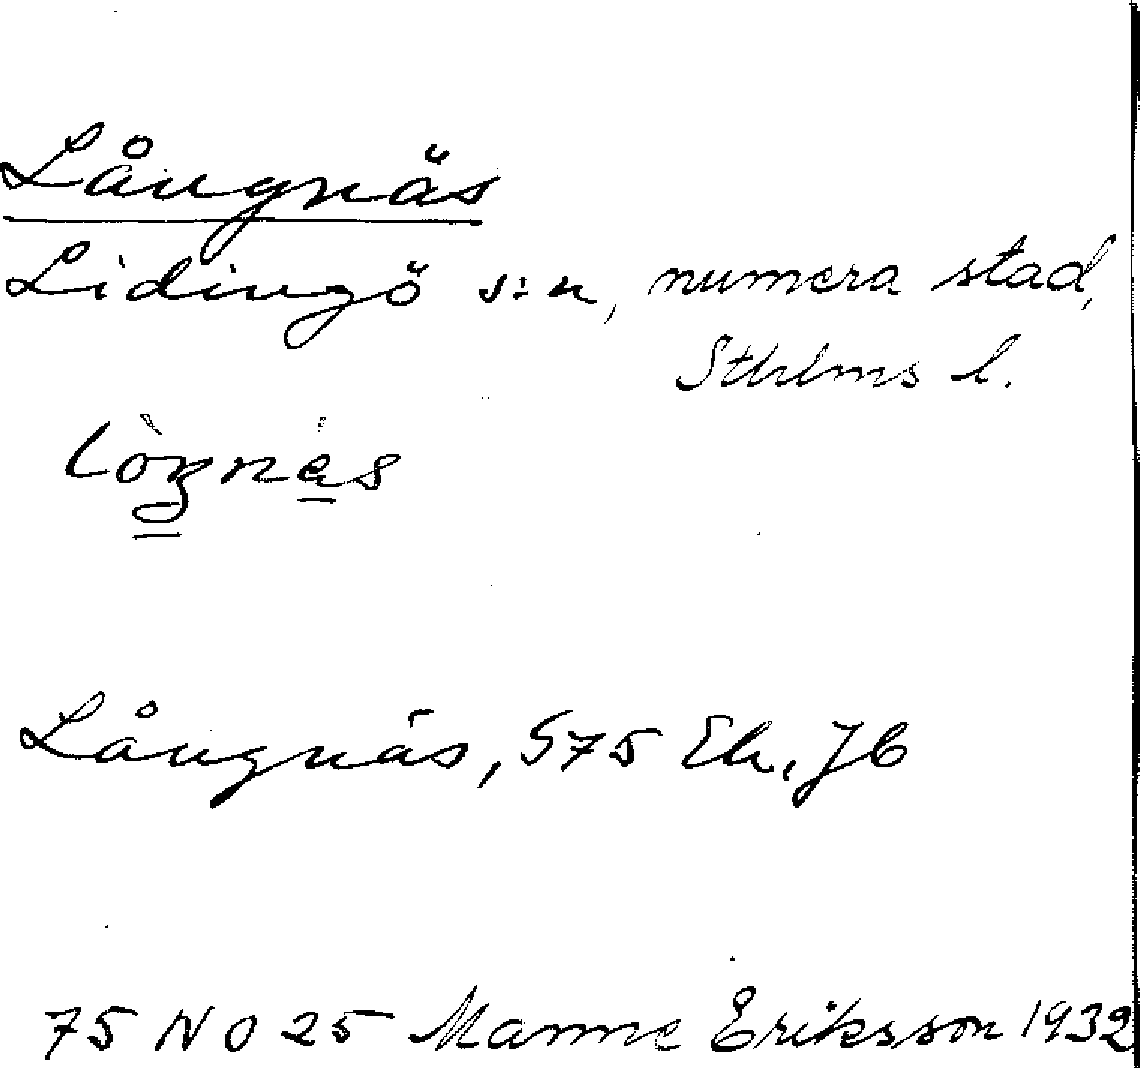 Långnäs
Lidingö s:n, numera stad,
Sthlms l.
lòŋnäs
Långnäs, S75 Ek. Jb
75 NO 25 Manne Eriksson 1932